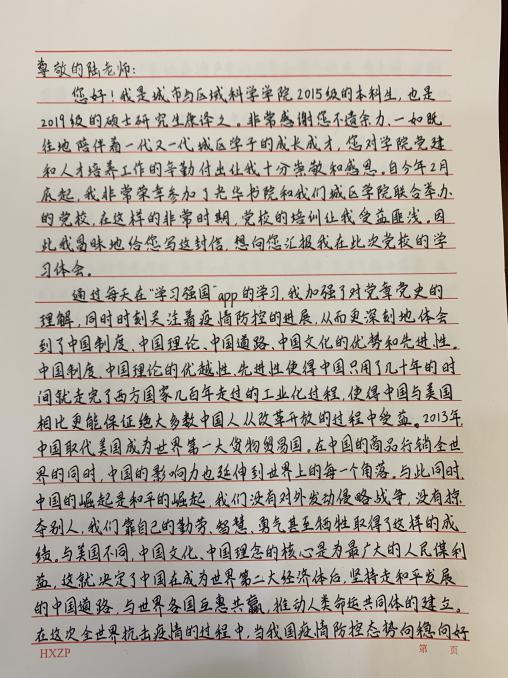 尊敬的陆老师:
您好!我是城市与区域科学学院2015级的本科生,也是
2019级的硕士研究生康译之。非常感谢您不遗余力、一如既
往地陪伴着一代又一代城区学子的成长成才,您对学院党建
和人才培养工作的辛勤付出让我十分崇敬和感恩。自今年2月
底起,我非常荣幸参加了光华书院和我们城区学院联合举办
的党校,在这样的非常时期,党校的培训让我受益匪浅。因
此我冒昧地给您写这封信,想向您汇报我在此次党校的学
习体会。
通过每天在“学习强国”app的学习,我加强了对党章党史的
理解,同时时刻关注着疫情防控的进展,从而更深刻地体会
到了中国制度、中国理论、中国道路、中国文化的优势和先进性。
中国制度、中国理论的优越性、先进性使得中国只用了几十年的时
间就走完了西方国家几百年走过的工业化过程,使得中国与美国
相比更能保证绝大多数中国人从改革开放的过程中受益。2013年,
中国取代美国成为世界第一大货物贸易国。在中国的商品行销全世
界的同时,中国的影响力也延伸到世界上的每一个角落。与此同时,
中国的崛起是和平的崛起,我们没有对外发动侵略战争,没有掠
夺别人,我们靠自己的勤劳、智慧、勇气甚至牺牲取得了这样的成
绩。与美国不同,中国文化、中国理念的核心是为最广大的人民谋利
益,这就决定了中国在成为世界第二大经济体后,坚持走和平发展
的中国道路,与世界各国互惠共赢,推动人类命运共同体的建立。
在这次全世界抗击疫情的过程中,当我国疫情防控态势向稳向好
HXZP 第 页